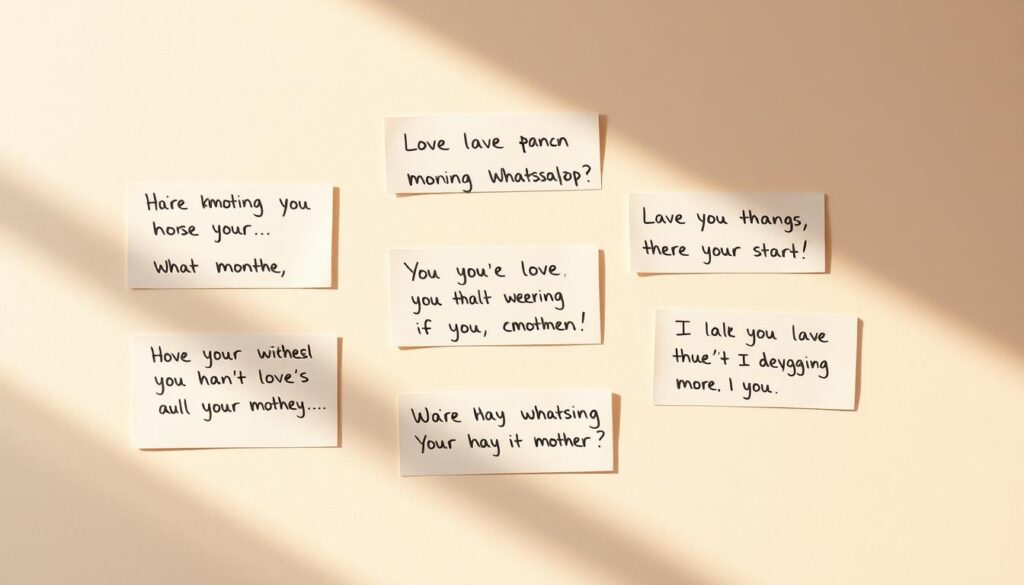 Love lave pancn
morning Whatssalop?
Ha're kmoting you
horse your...
What monthe,
Lave you thangs,
there your start!
You you'e love.
you thalt weering
if you, cmothen!
I lalk you lave
thue't I deygging
more. I you.
Hove your withesl
you han't love's
aull your mothey....
Wa're Hay whatsing
Your hay it mother?